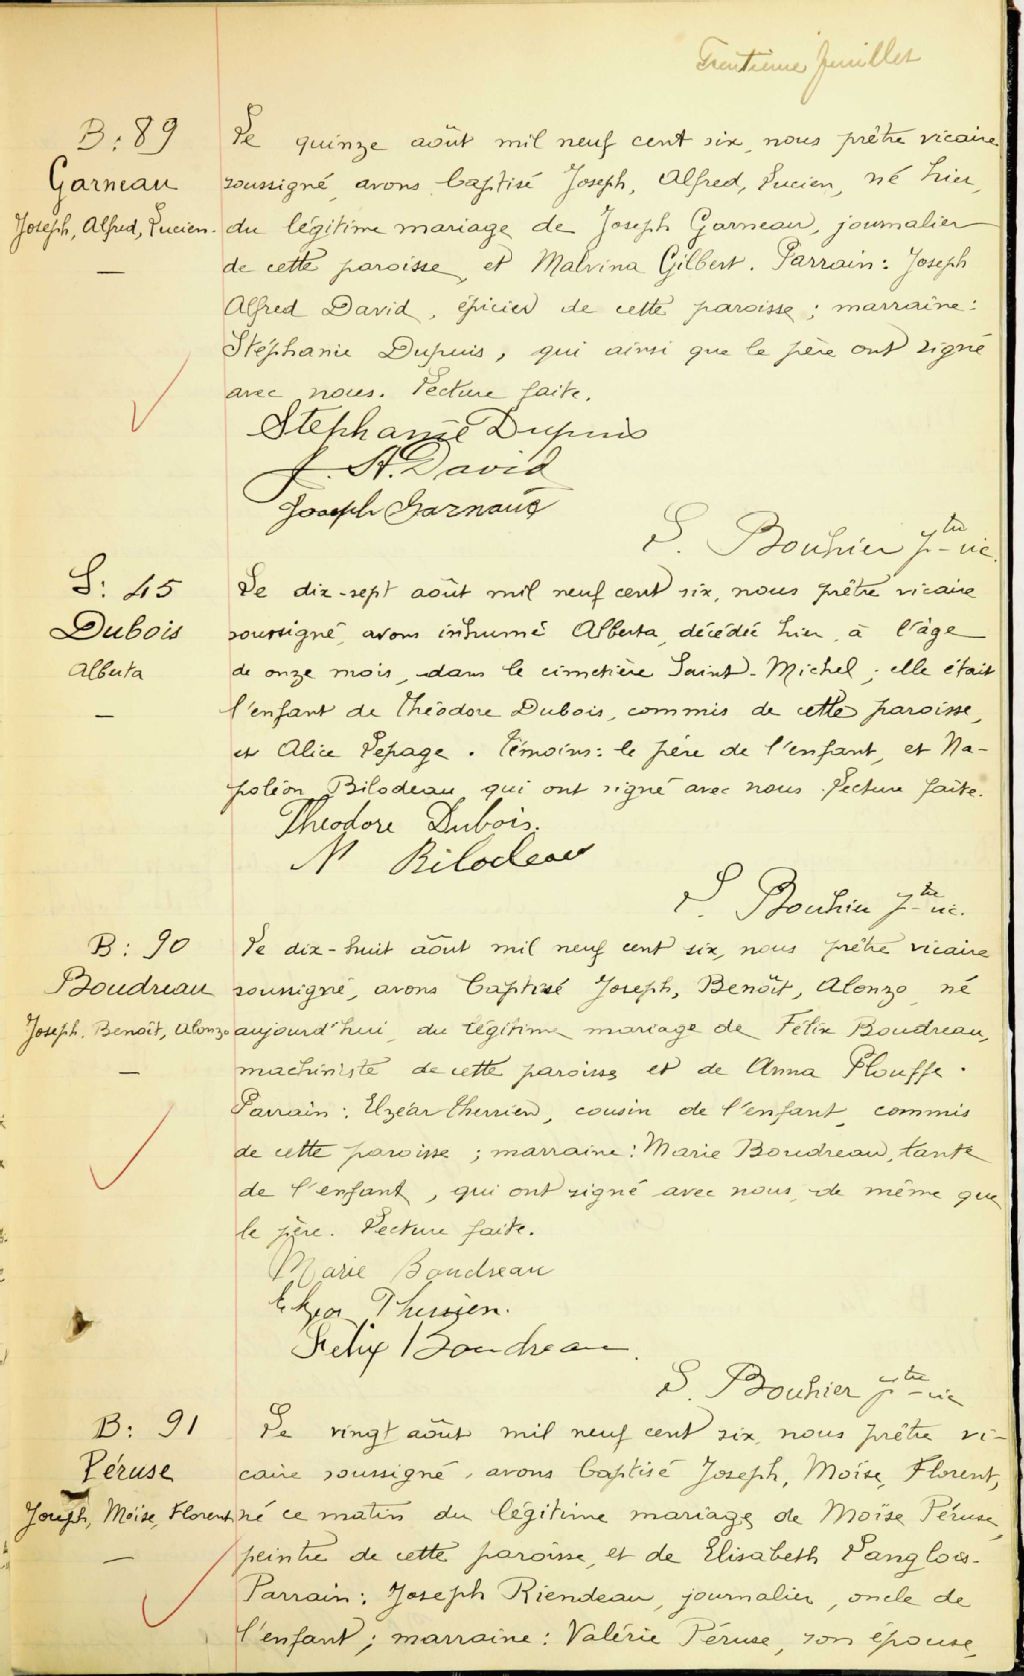 Trentième feuillet
B: 89
Garneau
Joseph, Alfred, Lucien.
Le quinze août mil neuf cent six, nous prêtre vicaire
soussigné, avons baptisé Joseph, Alfred, Lucien, né hier,
du légitime mariage de Joseph Garneau, journalier
de cette paroisse, et Malvina Gilbert. Parrain: Joseph
Alfred David, épicier de cette paroisse; marraine:
Stéphanie Dupuis, qui ainsi que le père ont signé
avec nous. Lecture faite.
Stephanie Dupuis
J. A. David
Joseph Garnaud
S. Bouhier ptre vic.
S: 45
Dubois
Alberta
Le dix-sept août mil neuf cent six, nous prêtre vicaire
soussigné, avons inhumé Alberta, décédée hier, à l'âge
de onze mois, dans le cimetière Saint-Michel; elle était
l'enfant de Théodore Dubois, commis de cette paroisse,
et Alice Lepage. Témoins: le père de l'enfant, et Na-
poléon Bilodeau, qui ont signé avec nous. Lecture faite.
Theodore Dubois.
N Bilodeau
S. Bouhier ptre vic.
B: 90
Boudreau
Joseph, Benoît, Alonzo
Le dix-huit août mil neuf cent six, nous prêtre vicaire
soussigné, avons baptisé Joseph, Benoît, Alonzo, né
aujourd'hui, du légitime mariage de Félix Boudreau,
machiniste de cette paroisse et de Anna Plouffe.
Parrain: Elzéar Therrien, cousin de l'enfant, commis
de cette paroisse; marraine: Marie Boudreau, tante
de l'enfant, qui ont signé avec nous, de même que
le père. Lecture faite.
Marie Boudreau
Therrien.
Felix Boudreau.
S. Bouhier ptre vic
B: 91
Péruse
Joseph, Moïse, Florent
Le vingt août mil neuf cent six, nous prêtre vi-
caire soussigné, avons baptisé Joseph, Moïse, Florent,
né ce matin du légitime mariage de Moïse Péruse,
peintre de cette paroisse, et de Elisabeth Langlois.
Parrain: Joseph Riendeau, journalier, oncle de
l'enfant; marraine: Valérie Péruse, son épouse,